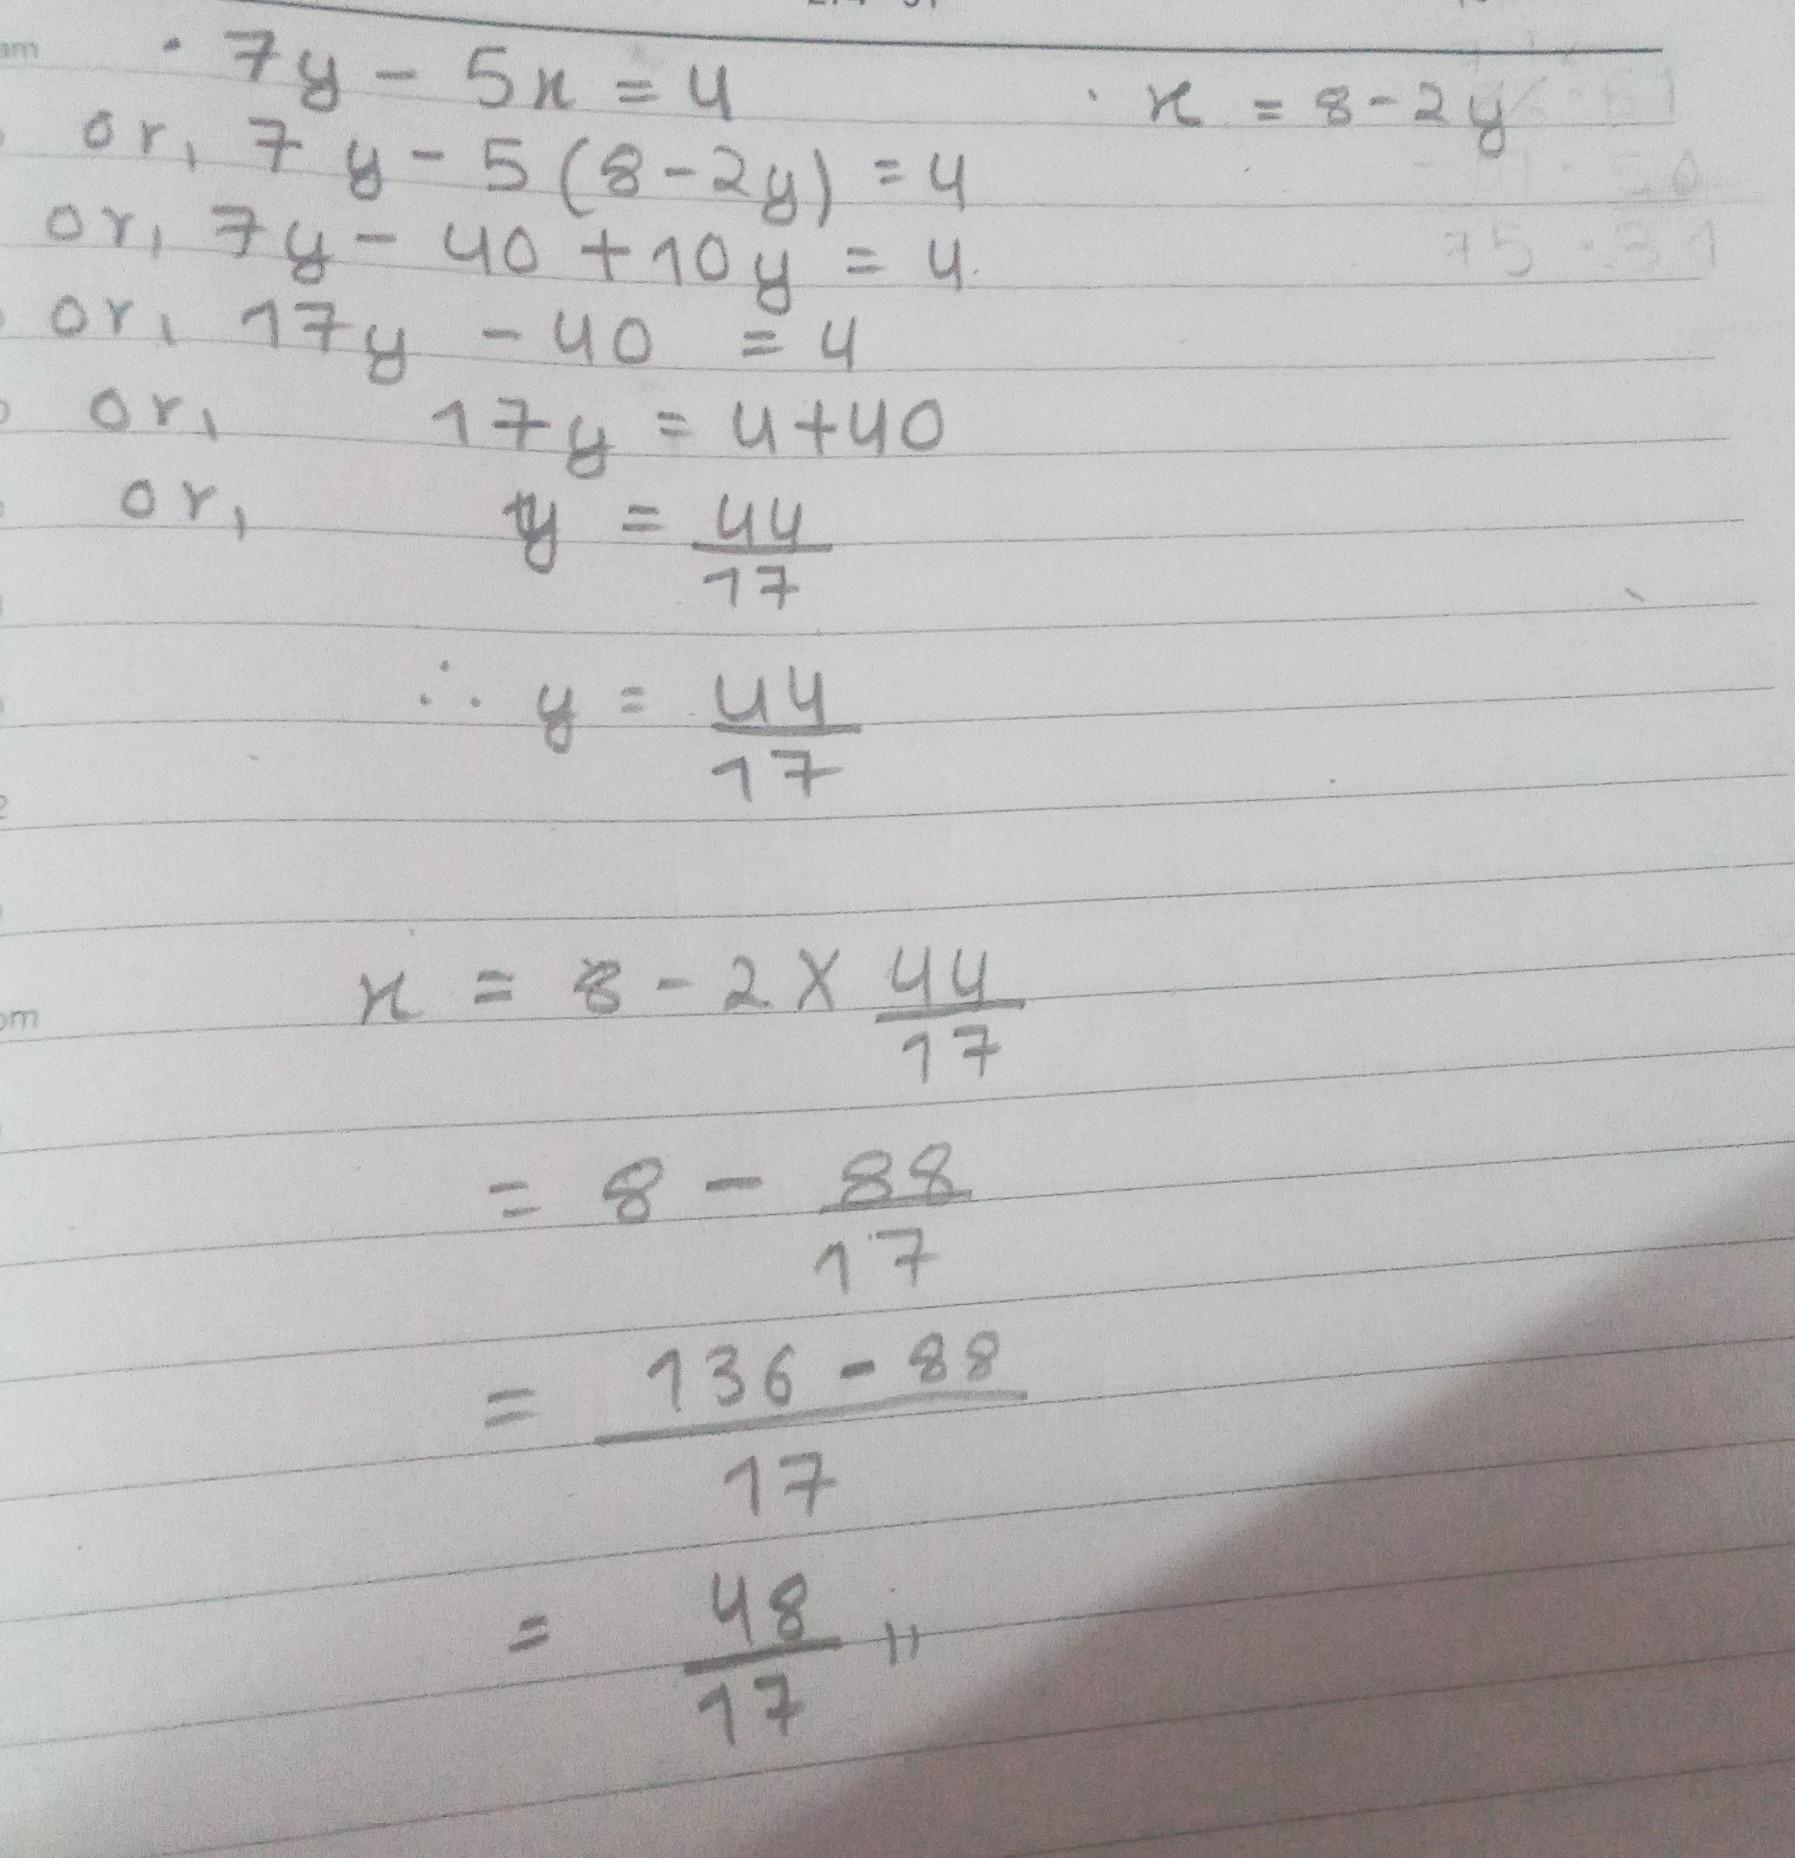 am
· 7y - 5x = 4
· x = 8 - 2y
or, 7y - 5(8 - 2y) = 4
or, 7y - 40 + 10y = 4
or, 17y - 40 = 4
or, 17y = 4 + 40
or, y = 44/17
∴ y = 44/17
x = 8 - 2 × 44/17
pm
= 8 - 88/17
= 136 - 88/17
= 48/17 "